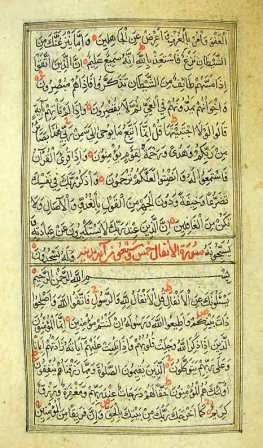 العفو وأمر بالعرف وأعرض عن الجاهلين وإما ينزغنك من
الشيطان نزغ فاستعذ بالله إنه سميع عليم إن الذين اتقوا
إذا مسهم طائف من الشيطان تذكروا فإذا هم مبصرون
وإخوانهم يمدونهم في الغي ثم لا يقصرون وإذا لم تأتهم بآية
قالوا لولا اجتبيتها قل إنما أتبع ما يوحى إلي من ربي هذا بصائر
من ربكم وهدى ورحمة لقوم يؤمنون وإذا قرئ القرآن
فاستمعوا له وأنصتوا لعلكم ترحمون واذكر ربك في نفسك
تضرعا وخيفة ودون الجهر من القول بالغدو والآصال ولا
تكن من الغافلين إن الذين عند ربك لا يستكبرون عن عبادته
ويسبحونه سورة الأنفال خمس وسبعون آية وله يسجدون
بسم الله الرحمن الرحيم
يسئلونك عن الأنفال قل الأنفال لله والرسول فاتقوا الله وأصلحوا
ذات بينكم وأطيعوا الله ورسوله إن كنتم مؤمنين إنما المؤمنون
الذين إذا ذكر الله وجلت قلوبهم وإذا تليت عليهم آياته زادتهم إيمانا
وعلى ربهم يتوكلون الذين يقيمون الصلوة ومما رزقناهم ينفقون
أولئك هم المؤمنون حقا لهم درجات عند ربهم ومغفرة ورزق
كريم كما أخرجك ربك من بيتك بالحق وإن فريقا من المؤمنين